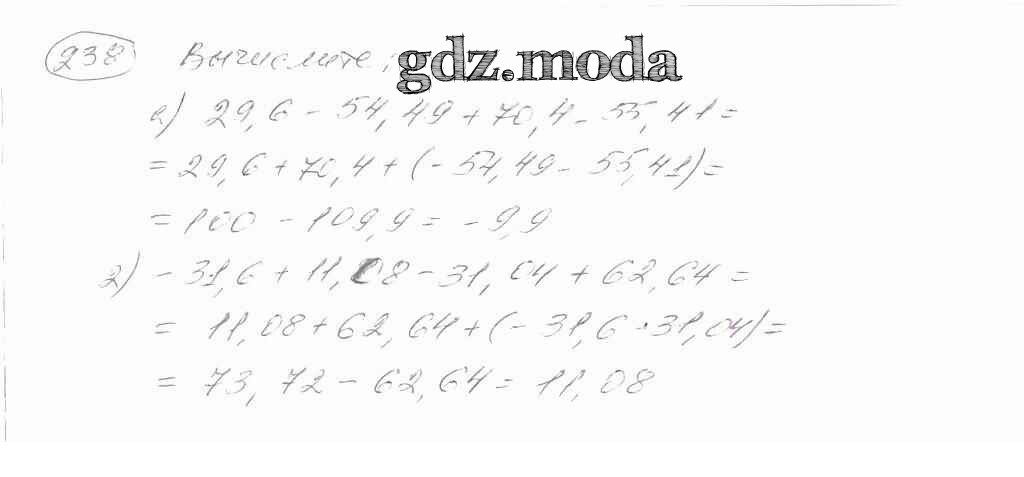 238 Вычислите: gdz.moda
а) 29,6 - 54,49 + 70,4 - 55,41 =
= 29,6 + 70,4 + (- 54,49 - 55,41) =
= 100 - 109,9 = - 9,9
2) - 31,6 + 11,08 - 31,04 + 62,64 =
= 11,08 + 62,64 + (- 31,6 - 31,04) =
= 73,72 - 62,64 = 11,08